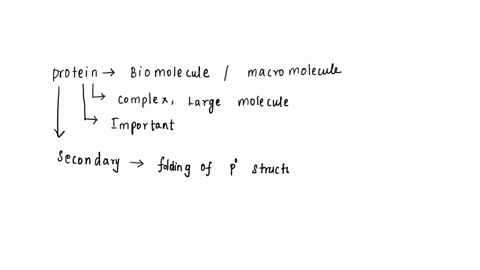 protein → Biomolecule / macromolecule
↳ complex, Large molecule
↳ Important
Secondary → folding of p° structu